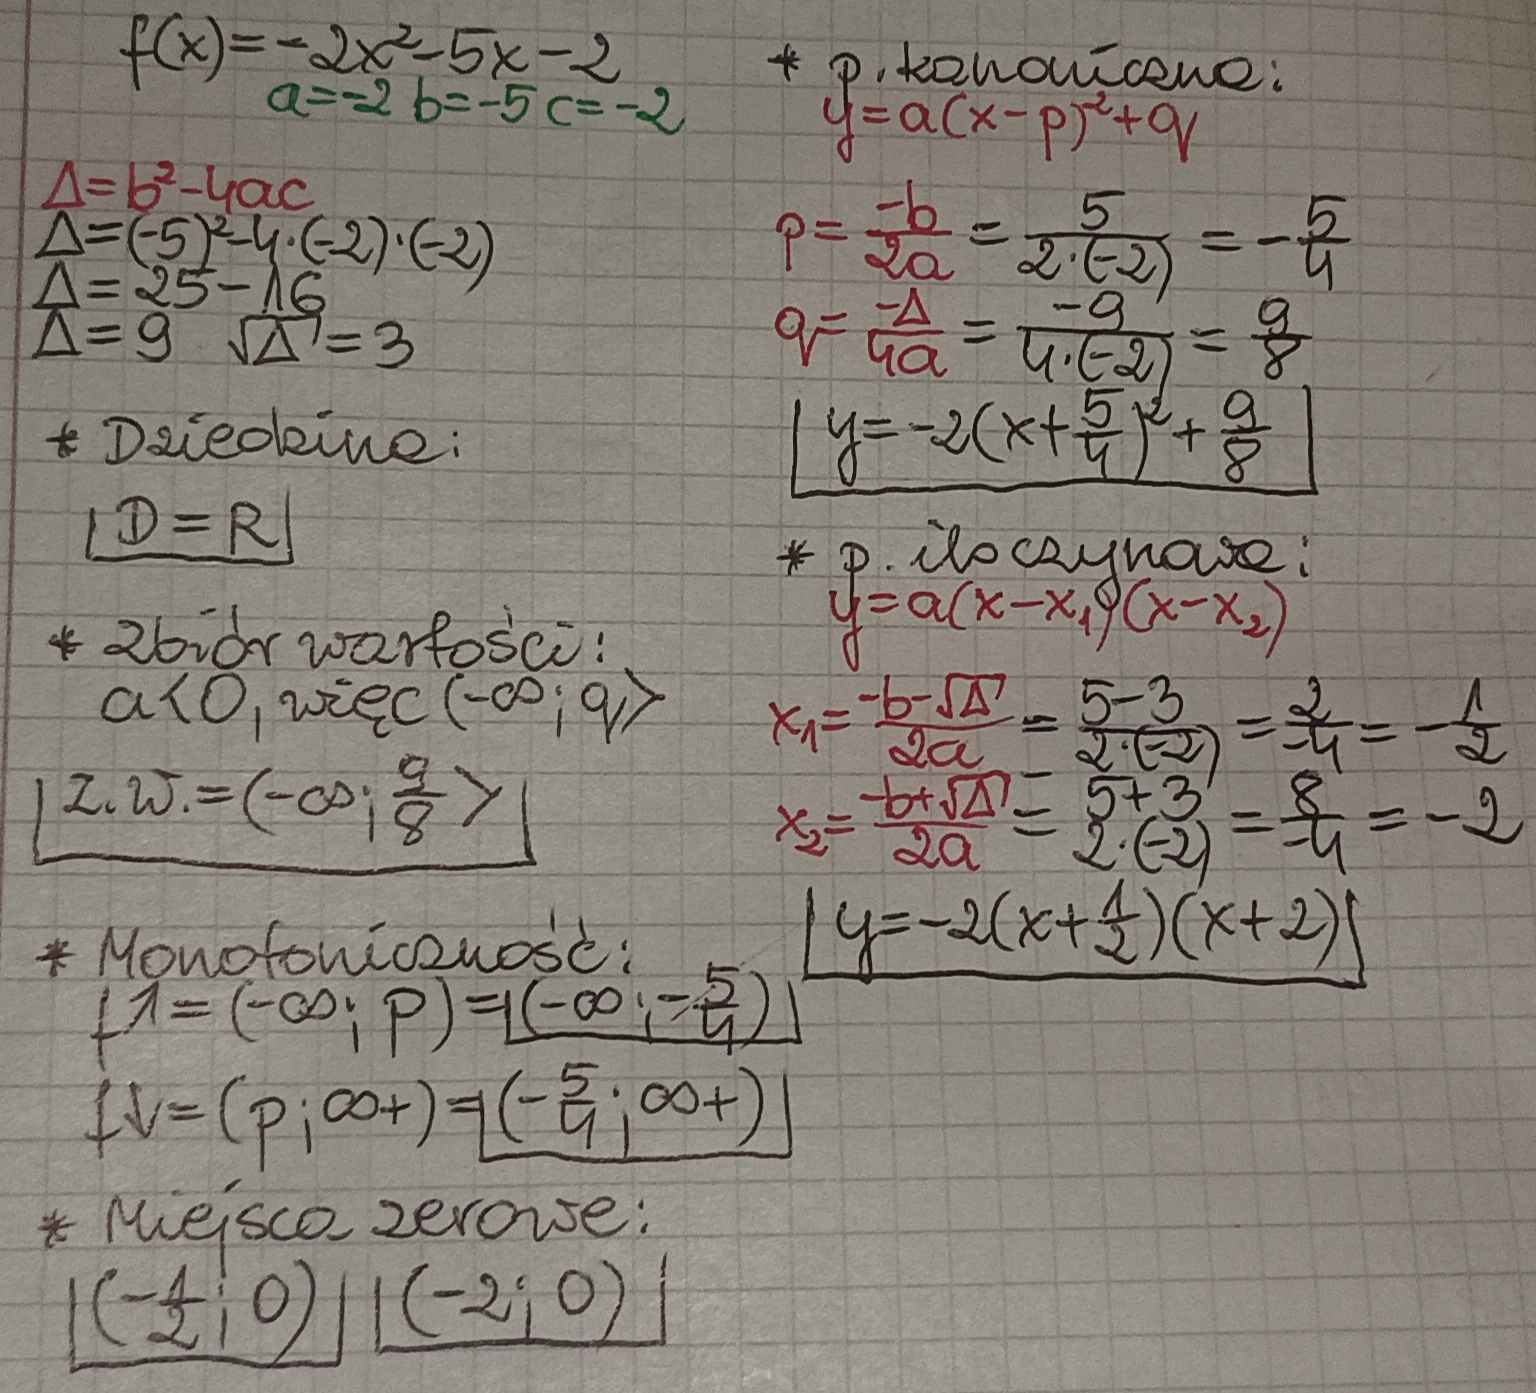 f(x)=-2x²-5x-2
a=-2 b=-5 c=-2
Δ=b²-4ac
Δ=(-5)²-4·(-2)·(-2)
Δ=25-16
Δ=9 √Δ=3
* Dziedzina:
D=R
* Zbiór wartości:
a<0, więc (-∞; q>
Z.W.=(-∞; 9/8>
* Monotoniczność:
f↑=(-∞; p)=(-∞; -5/4)
f↓=(p; ∞+)=(-5/4; ∞+)
* Miejsca zerowe:
(-1/2; 0) (-2; 0)
* p. kanoniczna:
y=a(x-p)²+q
p=-b/2a=5/2·(-2)=-5/4
q=-Δ/4a=-9/4·(-2)=9/8
y=-2(x+5/4)²+9/8
* p. iloczynowa:
y=a(x-x₁)(x-x₂)
x₁=-b-√Δ/2a=5-3/2·(-2)=2/-4=-1/2
x₂=-b+√Δ/2a=5+3/2·(-2)=8/-4=-2
y=-2(x+1/2)(x+2)